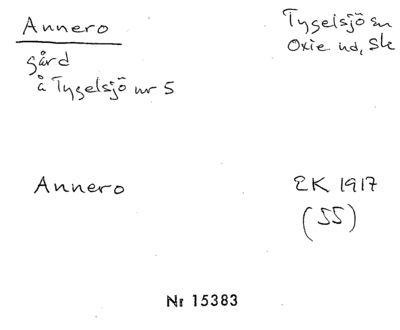 Annero
Tygelsjö sn
Oxie hd, Sk
gård
å Tygelsjö nr 5
Annero
EK 1917
(55)
Nr 15383